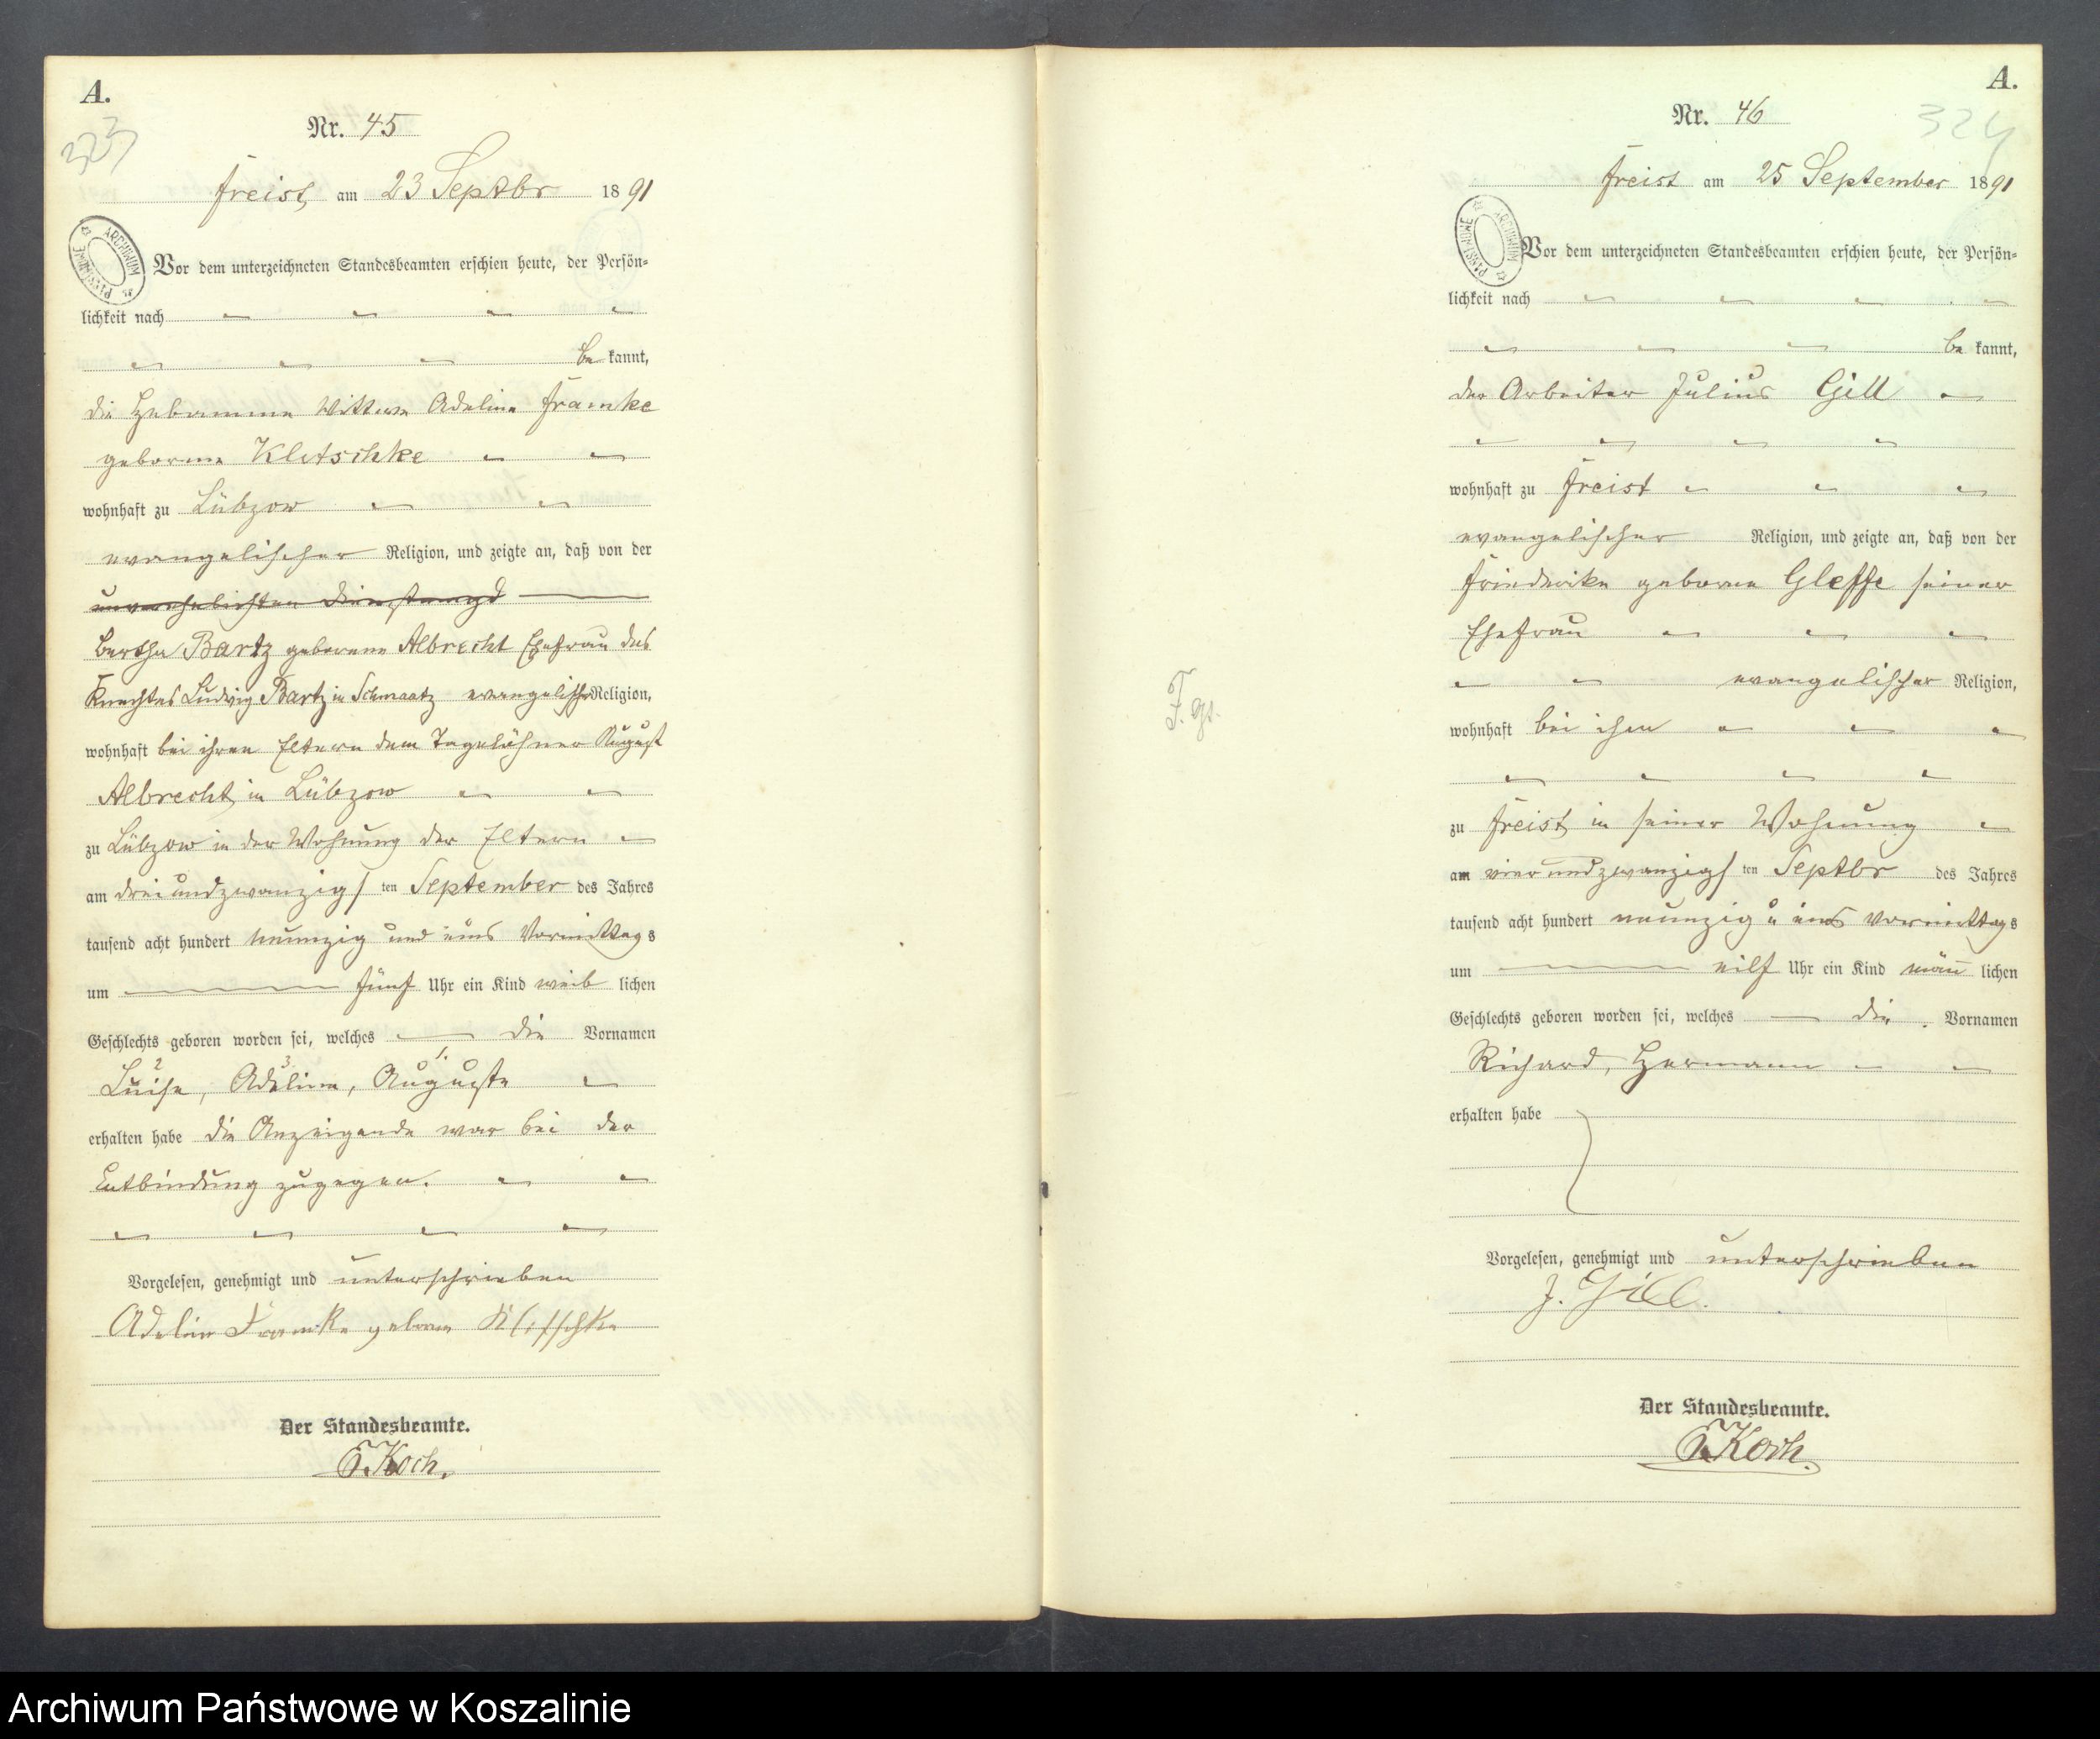 A.
323
Nr. 45
Freist, am 23 Septbr 1891
Vor dem unterzeichneten Standesbeamten erschien heute, der Persön-
lichkeit nach
be kannt,
die Hebamme Wittwe Adeline Framke
geborene Kletschke
wohnhaft zu Lübzow
evangelischer Religion, und zeigte an, daß von der
unverehelichten Dienstmagd
Bertha Bartz geborene Albrecht Ehefrau des
Knechtes Ludwig Bartz in Schmaatz evangelischer Religion,
wohnhaft bei ihren Eltern dem Tagelöhner August
Albrecht, in Lübzow
zu Lübzow in der Wohnung der Eltern
am dreiundzwanzigsten September des Jahres
tausend acht hundert neunzig und eins Vormittags
um fünf Uhr ein Kind weib lichen
Geschlechts geboren worden sei, welches die Vornamen
2 3 1.
Luise, Adeline, Auguste
erhalten habe die Anzeigende war bei der
Entbindung zugegen.
Vorgelesen, genehmigt und unterschrieben
Adeline Framke geborene Klitschke
Der Standesbeamte.
Koch.
ARCHIWUM PAŃSTWOWE
A.
324
Nr. 46
Freist am 25 September 1891
Vor dem unterzeichneten Standesbeamten erschien heute, der Persön-
lichkeit nach
be kannt,
der Arbeiter Julius Gill
wohnhaft zu Freist
evangelischer Religion, und zeigte an, daß von der
Friederike geborene Gleffe seiner
Ehefrau
evangelischer Religion,
wohnhaft bei ihm
zu Freist, in seiner Wohnung
am vierundzwanzigsten Septbr des Jahres
tausend acht hundert neunzig u eins Vormittags
um eilf Uhr ein Kind män̄ lichen
Geschlechts geboren worden sei, welches die Vornamen
Richard, Hermann
erhalten habe
Vorgelesen, genehmigt und unterschrieben
J. Gill.
Der Standesbeamte.
Koch.
ARCHIWUM PAŃSTWOWE
Archiwum Państwowe w Koszalinie